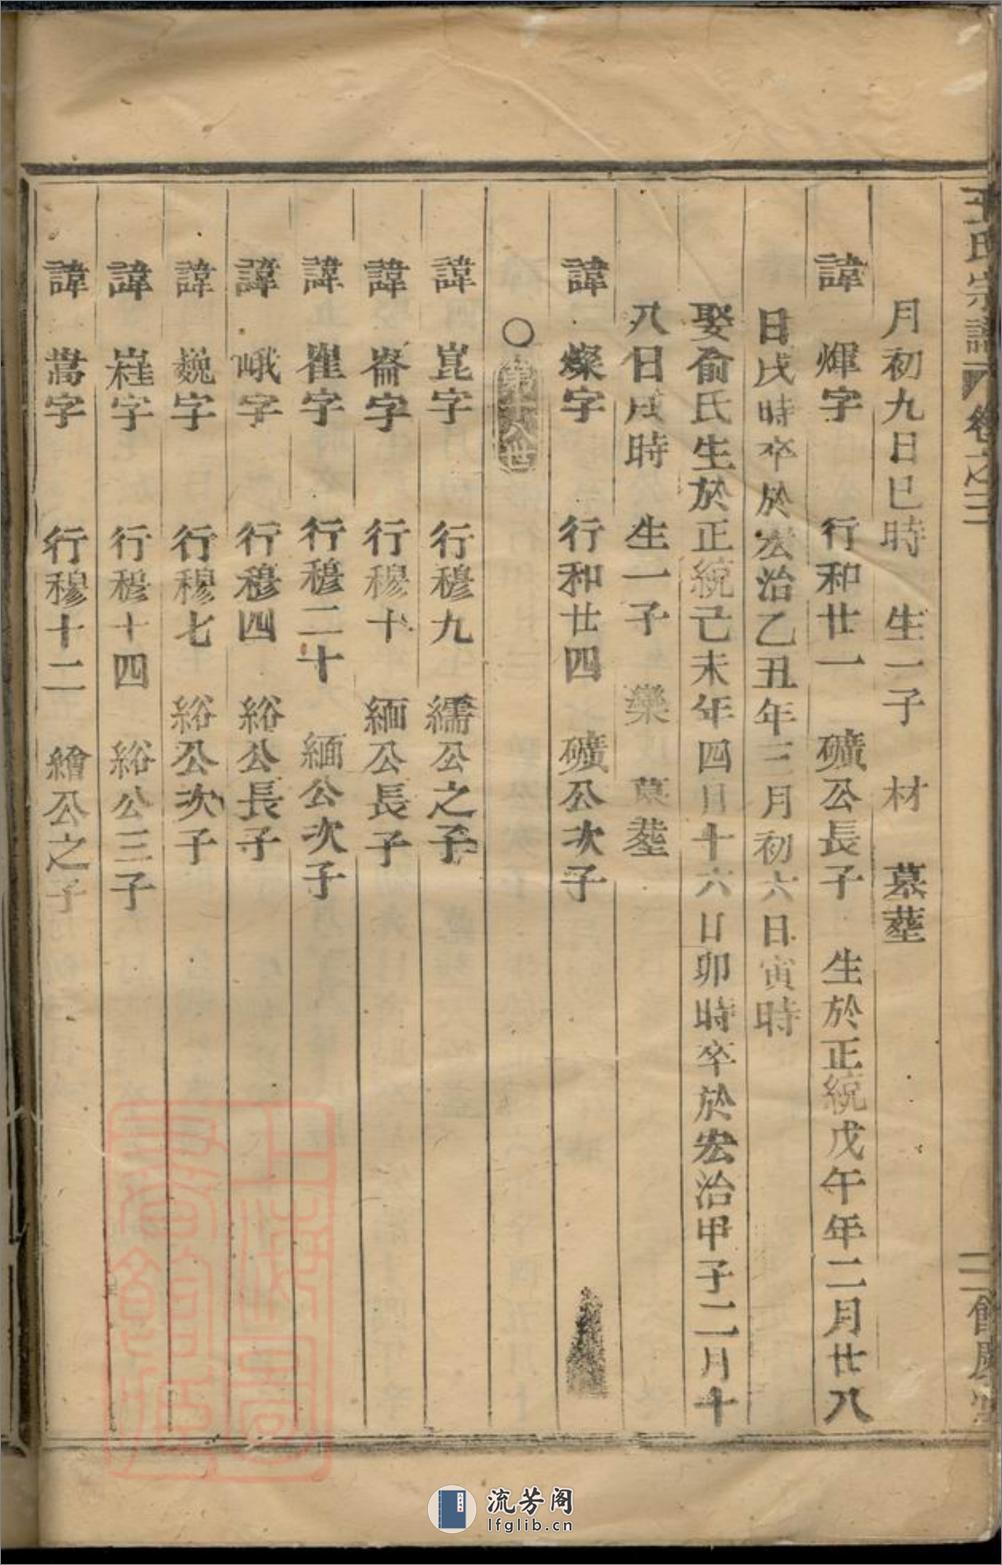 王氏宗譜 卷之三
月初九日巳時 生一子 材 墓塟
諱 煇字 行和廿一 礦公長子 生於正統戊午年二月廿八
日戌時卒於宏治乙丑年三月初六日寅時
娶俞氏生於正統己未年四月十六日卯時卒於宏治甲子二月十
八日戌時 生一子 欒 墓塟
諱 燦字 行和廿四 礦公次子
○第八世
諱 崑字 行穆九 繻公之子
諱 崙字 行穆十 緬公長子
諱 崔字 行穆二十 緬公次子
諱 峨字 行穆四 綌公長子
諱 巍字 行穆七 綌公次子
諱 嵀字 行穆十四 綌公三子
諱 嵩字 行穆十二 繪公之子
上海圖書館藏
流芳阁
lfglib.cn